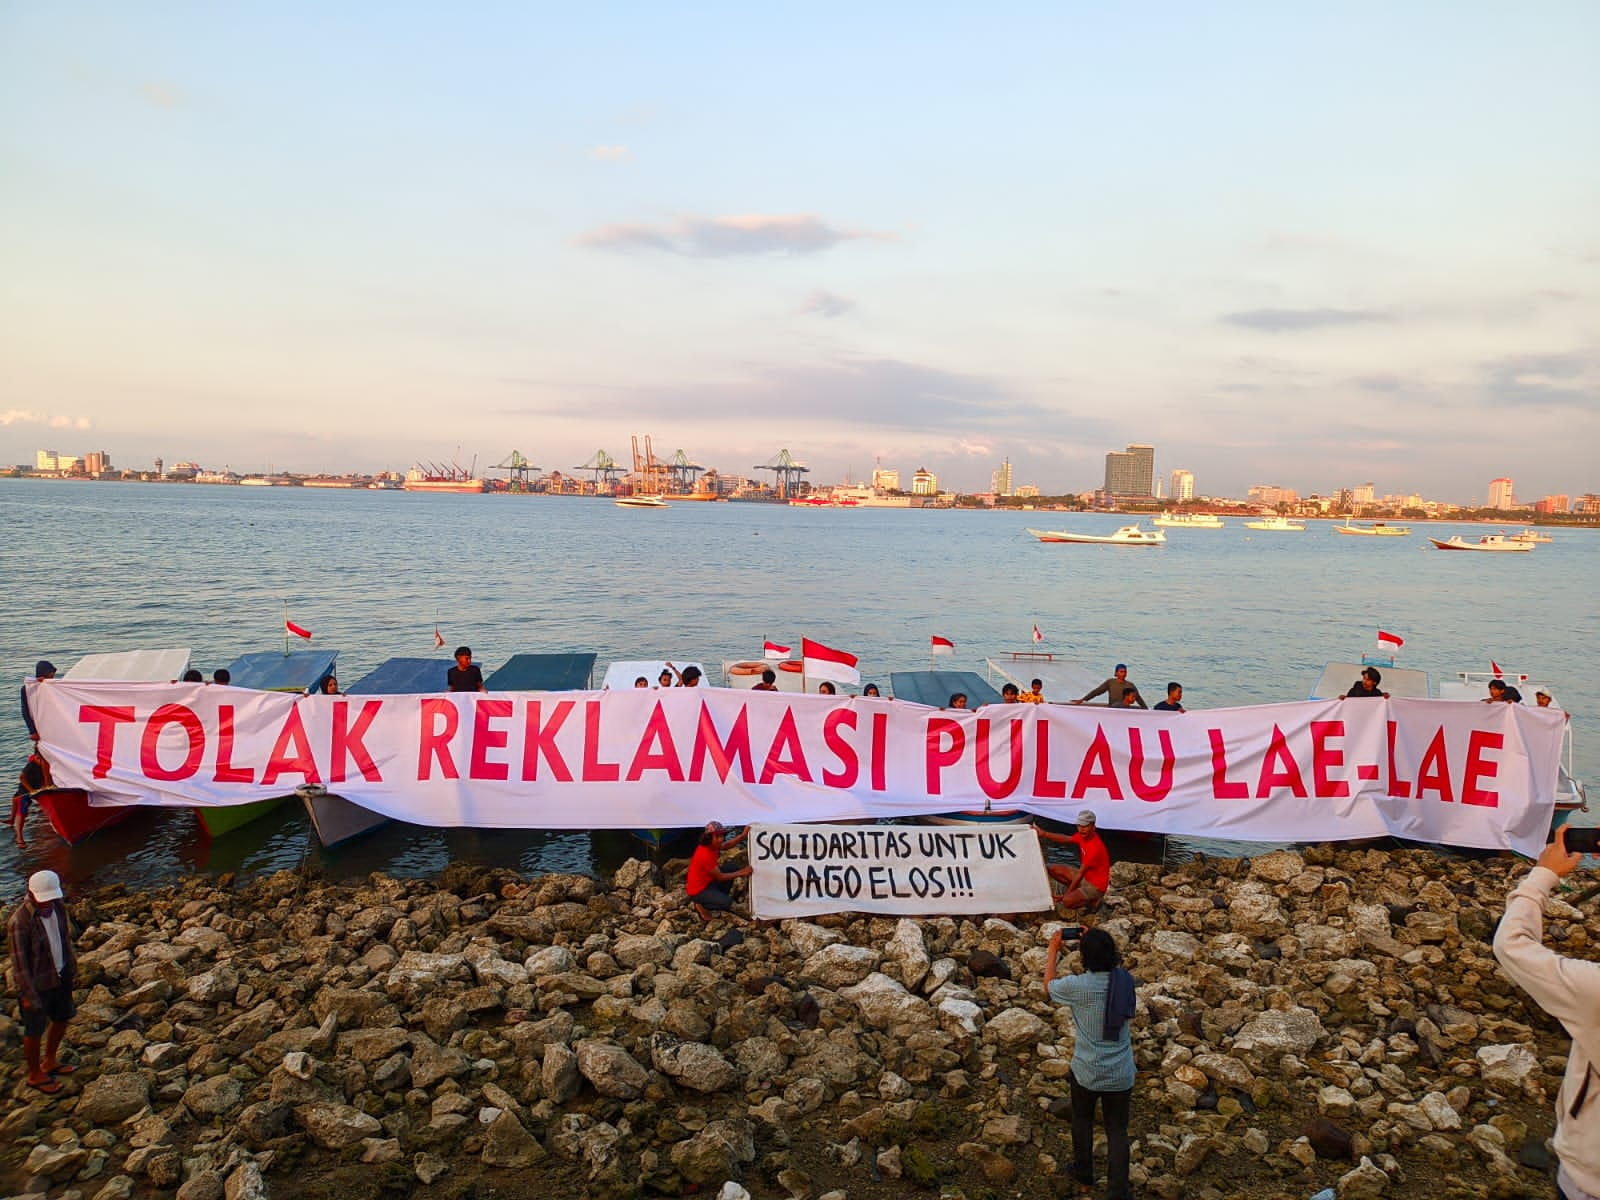 TOLAK REKLAMASI PULAU LAE-LAE
SOLIDARITAS UNTUK
DAGO ELOS!!!